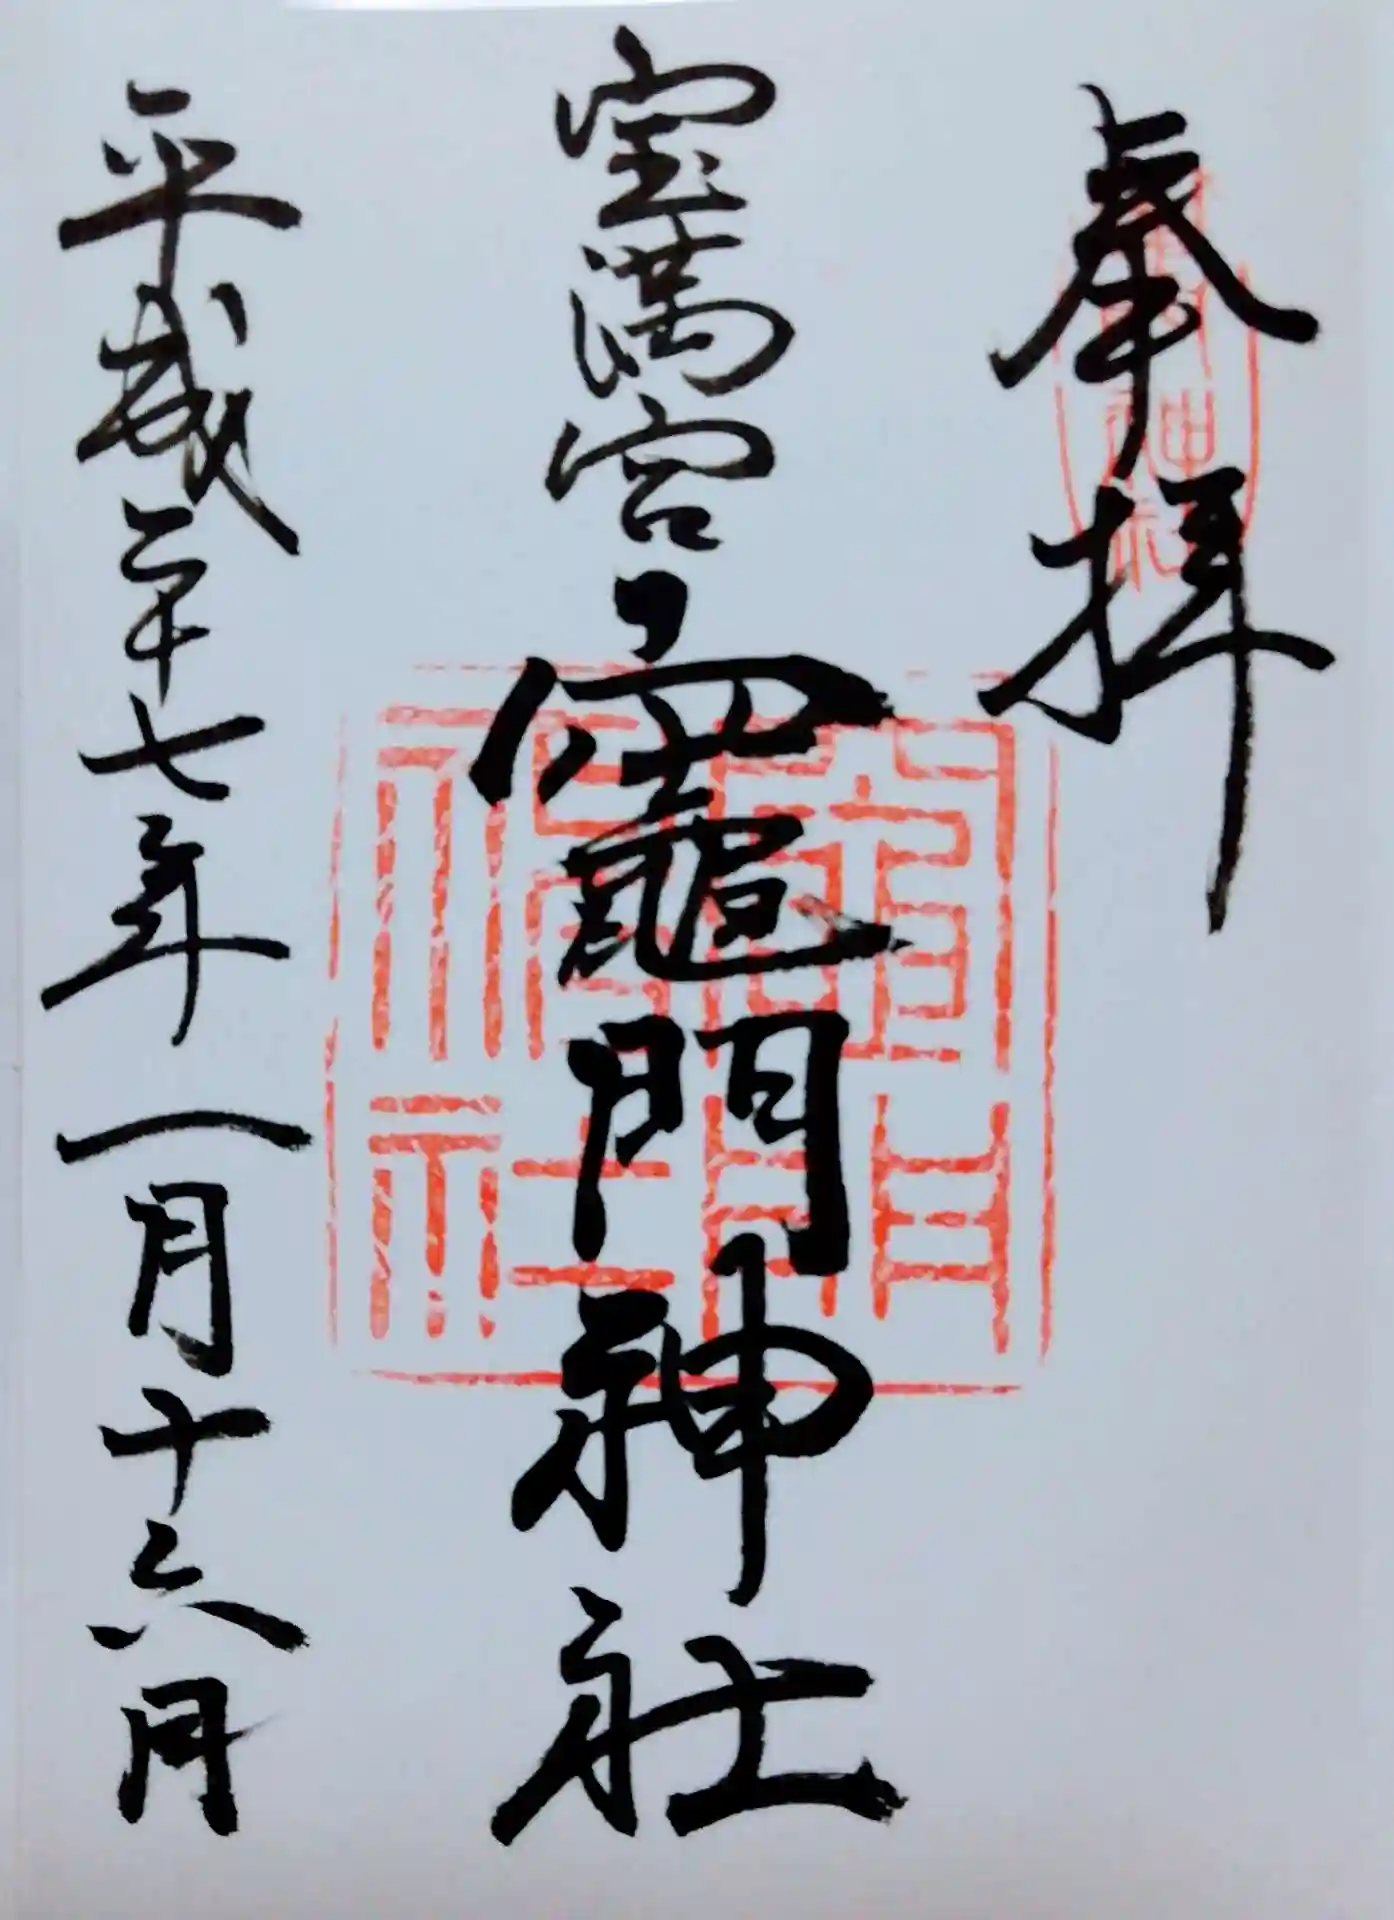 奉拝
宝満宮竈門神社
平成二十七年一月十六日